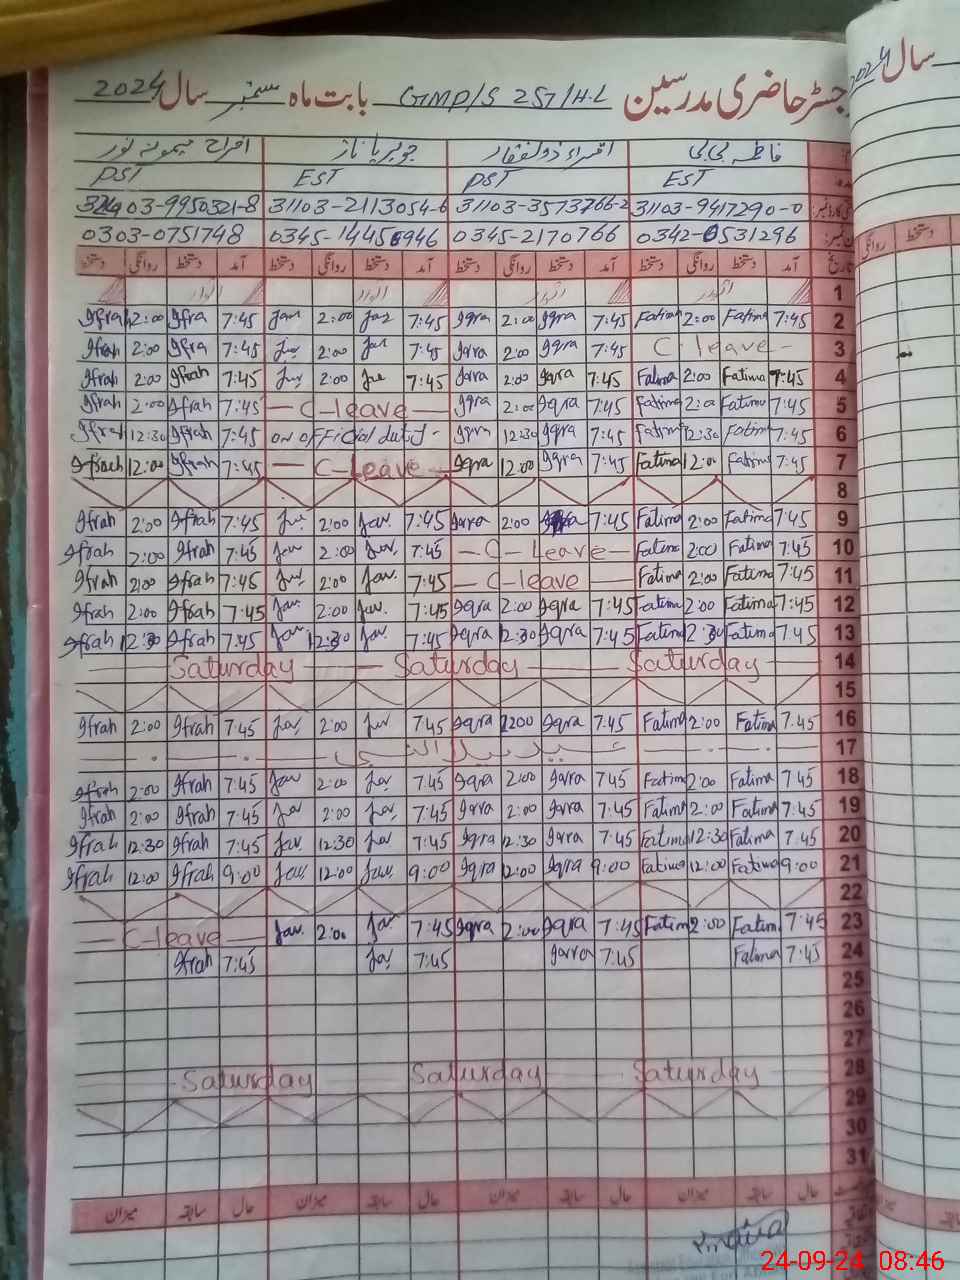 رجسٹر حاضری مدرسین GMP/S 257/H-L بابت ماہ ستمبر سال 2024
سال 2024
فاطمہ بی بی جویریا ناز افراح میمونہ نور
EST PST EST PST
31103-9417290-0 31103-3573766-2 31103-2113054-6 03-9950321-8
0342-6531296 0345-2170766 0345-1445 946 0303-0751748
تاریخ آمد دستخط روانگی دستخط آمد دستخط روانگی دستخط آمد دستخط روانگی دستخط آمد دستخط روانگی دستخط
دستخط روانگی
1 اتوار اتوار اتوار اتوار
Ifrah 2:00 Ifra 7:45 Jav 2:00 Jav 7:45 Iqra 2:00 Iqra 7:45 Fatima 2:00 Fatima 7:45 2
Ifrah 2:00 Ifra 7:45 Jav 2:00 Jav 7:45 Iqra 2:00 Iqra 7:45 C-leave - 3
Ifrah 2:00 Ifrah 7:45 Jav 2:00 Jav 7:45 Iqra 2:00 Iqra 7:45 Fatima 2:00 Fatima 7:45 4
Ifrah 2:00 Ifrah 7:45 - C-leave - Iqra 2:00 Iqra 7:45 Fatima 2:00 Fatima 7:45 5
Ifrah 12:30 Ifrah 7:45 on official duty - Iqra 12:30 Iqra 7:45 Fatima 12:30 Fatima 7:45 6
Ifrah 12:00 Ifrah 7:45 - C-Leave - Iqra 12:00 Iqra 7:45 Fatima 12:00 Fatima 7:45 7
8
Ifrah 2:00 Ifrah 7:45 Jav 2:00 Jav. 7:45 Iqra 2:00 Iqra 7:45 Fatima 2:00 Fatima 7:45 9
Ifrah 2:00 Ifrah 7:45 Jav 2:00 Jav. 7:45 - C- Leave - Fatima 2:00 Fatima 7:45 10
Ifrah 2:00 Ifrah 7:45 Jav. 2:00 Jav. 7:45 - C-leave - Fatima 2:00 Fatima 7:45 11
Ifrah 2:00 Ifrah 7:45 Jav. 2:00 Jav. 7:45 Iqra 2:00 Iqra 7:45 Fatima 2:00 Fatima 7:45 12
Ifrah 12:30 Ifrah 7:45 Jav 12:30 Jav. 7:45 Iqra 12:30 Iqra 7:45 Fatima 12:30 Fatima 7:45 13
Saturday - Saturday - Saturday 14
15
Ifrah 2:00 Ifrah 7:45 Jav. 2:00 Jav 7:45 Iqra 1200 Iqra 7:45 Fatima 2:00 Fatima 7:45 16
عید میلاد النبی 17
Ifrah 2:00 Ifrah 7:45 Jav 2:00 Jav 7:45 Iqra 2:00 Iqra 7:45 Fatima 2:00 Fatima 7:45 18
Ifrah 2:00 Ifrah 7:45 Jav 2:00 Jav. 7:45 Iqra 2:00 Iqra 7:45 Fatima 2:00 Fatima 7:45 19
Ifrah 12:30 Ifrah 7:45 Jav. 12:30 Jav. 7:45 Iqra 12:30 Iqra 7:45 Fatima 12:30 Fatima 7:45 20
Ifrah 12:00 Ifrah 9:00 Jav. 12:00 Jav. 9:00 Iqra 12:00 Iqra 9:00 Fatima 12:00 Fatima 9:00 21
22
- C-leave - Jav. 2:00 Jav. 7:45 Iqra 2:00 Iqra 7:45 Fatima 2:00 Fatima 7:45 23
Ifrah 7:45 Jav 7:45 Iqra 7:45 Fatima 7:45 24
25
26
27
Saturday Saturday Saturday 28
29
30
31
حال سابقہ میزان حال سابقہ میزان حال سابقہ میزان حال سابقہ میزان
24-09-24 08:46